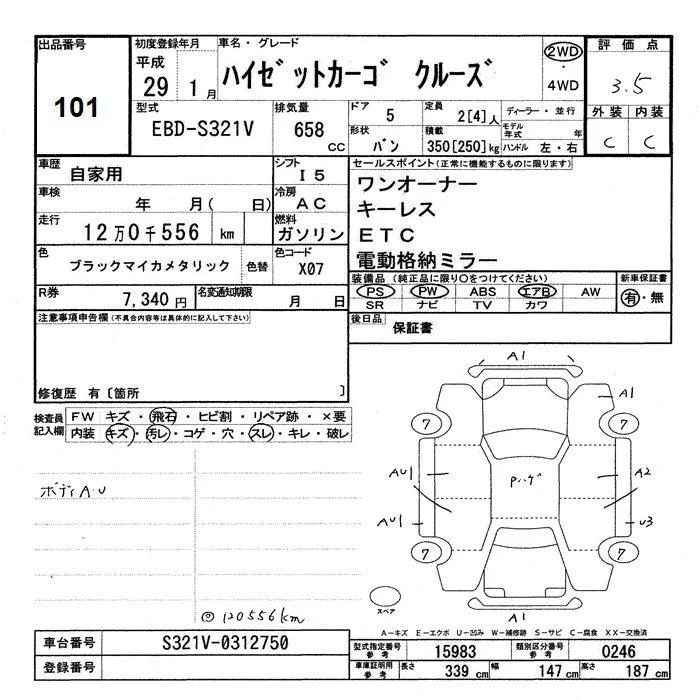 出品番号
101
初度登録年月
平成
29 1月
車名・グレード
ハイゼットカーゴ クルーズ
2WD
・
4WD
評価点
3.5
型式
EBD-S321V
排気量
658
CC
ドア 5
定員 2[4]人
ディーラー・並行
形状 バン
積載 350[250]kg
モデル年式 年
ハンドル 左・右
外装 内装
C C
車歴
自家用
シフト
I5
車検
年 月( 日)
冷房
AC
走行
12万0千556 km
燃料
ガソリン
色
ブラックマイカメタリック
色替
色コード
X07
R券
7,340円
名変通知期限
月 日
セールスポイント(正常に機能するものに限ります)
ワンオーナー
キーレス
ETC
電動格納ミラー
装備品(純正品に限り○をつけてください)
PS PW ABS エアB AW
SR ナビ TV カワ
新車保証書
有・無
後日品
保証書
注意事項申告欄(不具合内容等は具体的に記入して下さい)
修復歴 有〔箇所 〕
検査員
記入欄
FW キズ・飛石・ヒビ割・リペア跡・×要
内装 キズ・汚レ・コゲ・穴・スレ・キレ・破レ
ボディA・U
◎120556km
A1
A1
7 7
AU1
A2
AU1
U3
7 7
スペア
A1
A－キズ E－エクボ U－凹み W－補修跡 S－サビ C－腐食 XX－交換済
車台番号
S321V-0312750
登録番号
型式指定番号
参考
15983
類別区分番号
参考
0246
車庫証明用
参考
長さ 339cm
幅 147cm
高さ 187cm